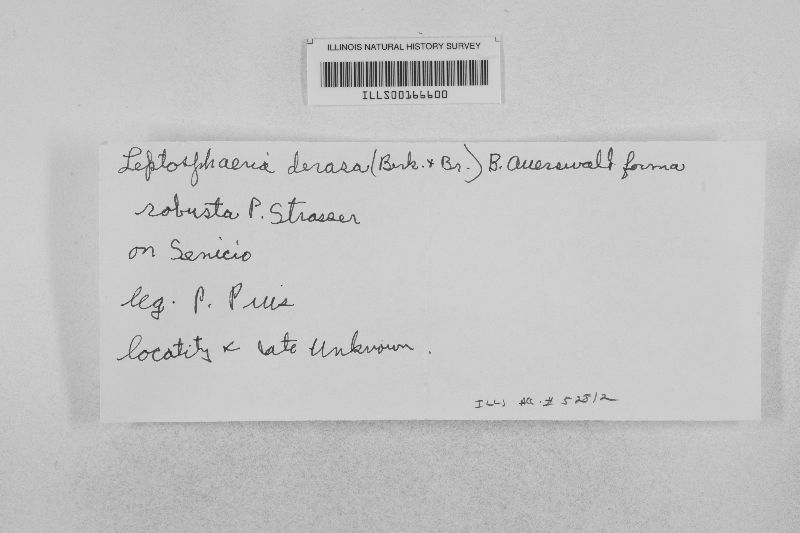 ILLINOIS NATURAL HISTORY SURVEY
ILLS00166600
Leptosphaeria derasa (Berk. & Br.) B. Auerswald forma
robusta P. Strasser
on Senicio
leg. P. Pius
locatity & date Unknown.
ILLS Acc. # 52812